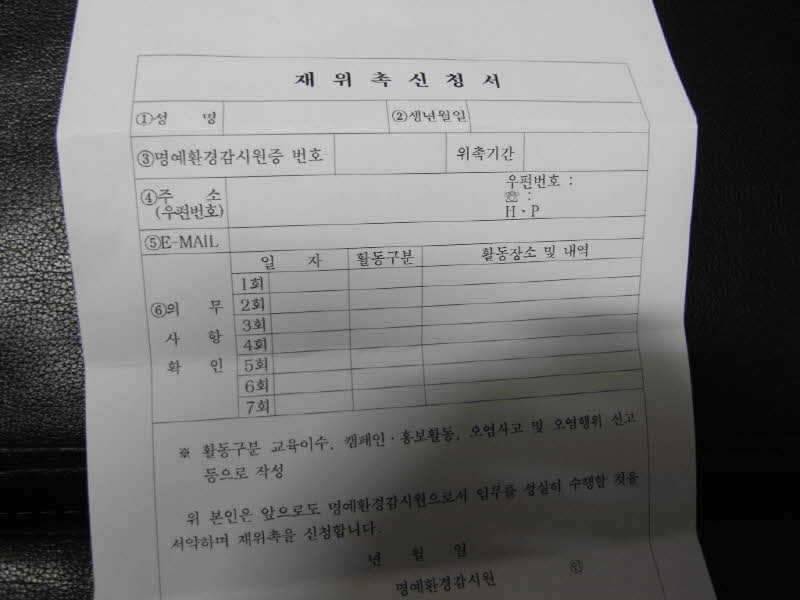 재 위 촉 신 청 서
①성 명
②생년월일
③명예환경감시원증 번호
위촉기간
④주 소
(우편번호)
우편번호 :
☏ :
H·P
⑤E-MAIL
⑥의 무
사 항
확 인
일 자 활동구분 활동장소 및 내역
1회
2회
3회
4회
5회
6회
7회
※ 활동구분 교육이수, 캠페인·홍보활동, 오염사고 및 오염행위 신고
등으로 작성
위 본인은 앞으로도 명예환경감시원으로서 임무를 성실히 수행할 것을
서약하며 재위촉을 신청합니다.
년 월 일
명예환경감시원 ㊞